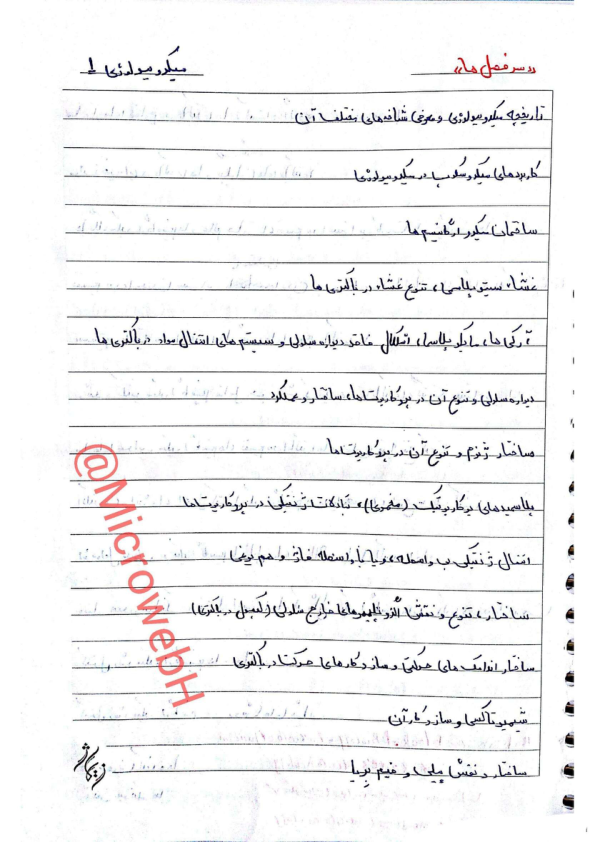 «سر فصل ها»
میکروبیولوژی 1
تاریخچه میکروبیولوژی و معرفی شاخه های مختلف آن
کاربردهای میکروسکوپ در میکروبیولوژی
ساختمان میکرو ارگانیسم ها
غشاء سیتوپلاسمی، تنوع غشاء در باکتری ها
آرکی ها، مایکوپلاسما، اشکال فاقد دیواره سلولی و سیستم های انتقال مواد در باکتری ها
دیواره سلولی و تنوع آن در پروکاریوت ها، ساختار و عملکرد
ساختار ژنوم و تنوع آن در پروکاریوت ها
پلاسمیدهای پروکاریوتیک (مخمری)، تبادلات ژنتیکی در پروکاریوت ها
انتقال ژنتیکی ب واسطه، و یا با واسطه فاژ و هم یوغی
ساختار، تنوع و نقش خارج سلولی (کپسول در باکتری)
ساختار اندامک های حرکتی و ساز و کارهای حرکت در باکتری
شیمیوتاکسی و ساز و کار آن
ساختار و نقش پیلی و فیم بریا
@MicrowebH